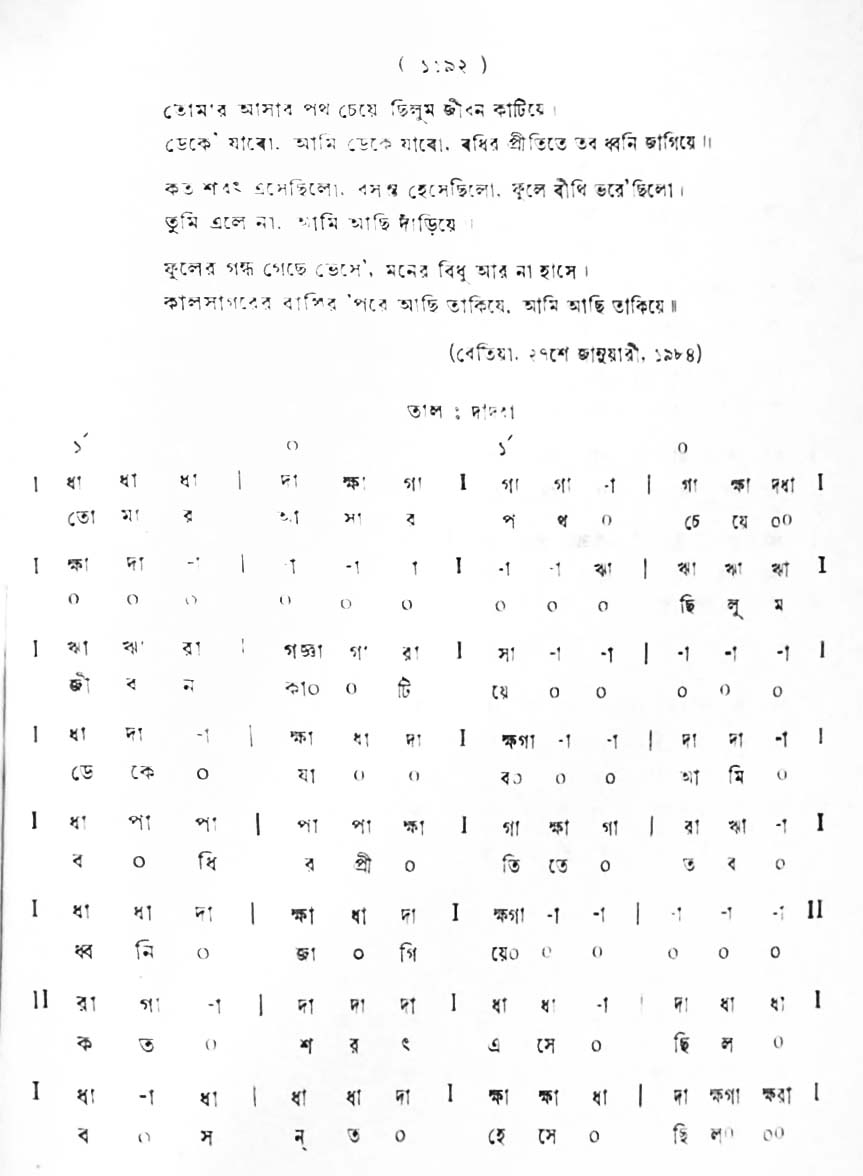 ( ১১৯২ )
তোমার আসার পথ চেয়ে ছিলুম জীবন কাটিয়ে।
ডেকে' যাবো, আমি ডেকে যাবো, বধির প্রীতিতে তব ধ্বনি জাগিয়ে॥
কত শরৎ এসেছিলো, বসন্ত হেসেছিলো, ফুলে বীথি ভরে'ছিলো।
তুমি এলে না, আমি আছি দাঁড়িয়ে।
ফুলের গন্ধ গেছে ভেসে', মনের বিধু আর না হাসে।
কালসাগরের বালির 'পরে আছি তাকিয়ে, আমি আছি তাকিয়ে॥
(বেতিয়া, ২৭শে জানুয়ারী, ১৯৮৪)
তাল : দাদরা
১´ ০ ১´ ০
I ধা ধা ধা | দা ক্ষা গা I গা গা -া | গা ক্ষা দধা I
তো মা র আ সা র প থ ০ চে য়ে ০০
I ক্ষা দা -া | -া -া া I -া -া ঋা | ঋা ঋা ঋা I
০ ০ ০ ০ ০ ০ ০ ০ ০ ছি লু ম
I ঋা ঋা রা | গজ্ঞা গা রা I সা -া -া | -া -া -া I
জী ব ন কা০ ০ টি য়ে ০ ০ ০ ০ ০
I ধা দা -া | ক্ষা ধা দা I ক্ষগা -া -া | দা দা -া I
ডে কে ০ যা ০ ০ ব০ ০ ০ আ মি ০
I ধা পা পা | পা পা ক্ষা I গা ক্ষা গা | রা ঋা -া I
ব ০ ধি র প্রী ০ তি তে ০ ত ব ০
I ধা ধা দা | ক্ষা ধা দা I ক্ষগা -া -া | -া -া -া II
ধ্ব নি ০ জা ০ গি য়ে০ ০ ০ ০ ০ ০
II রা গা -া | দা দা দা I ধা ধা -া | দা ধা ধা I
ক ত ০ শ র ৎ এ সে ০ ছি ল ০
I ধা -া ধা | ধা ধা দা I ক্ষা ক্ষা ধা | দা ক্ষগা ক্ষরা I
ব ০ স ন্ ত ০ হে সে ০ ছি ল০ ০০